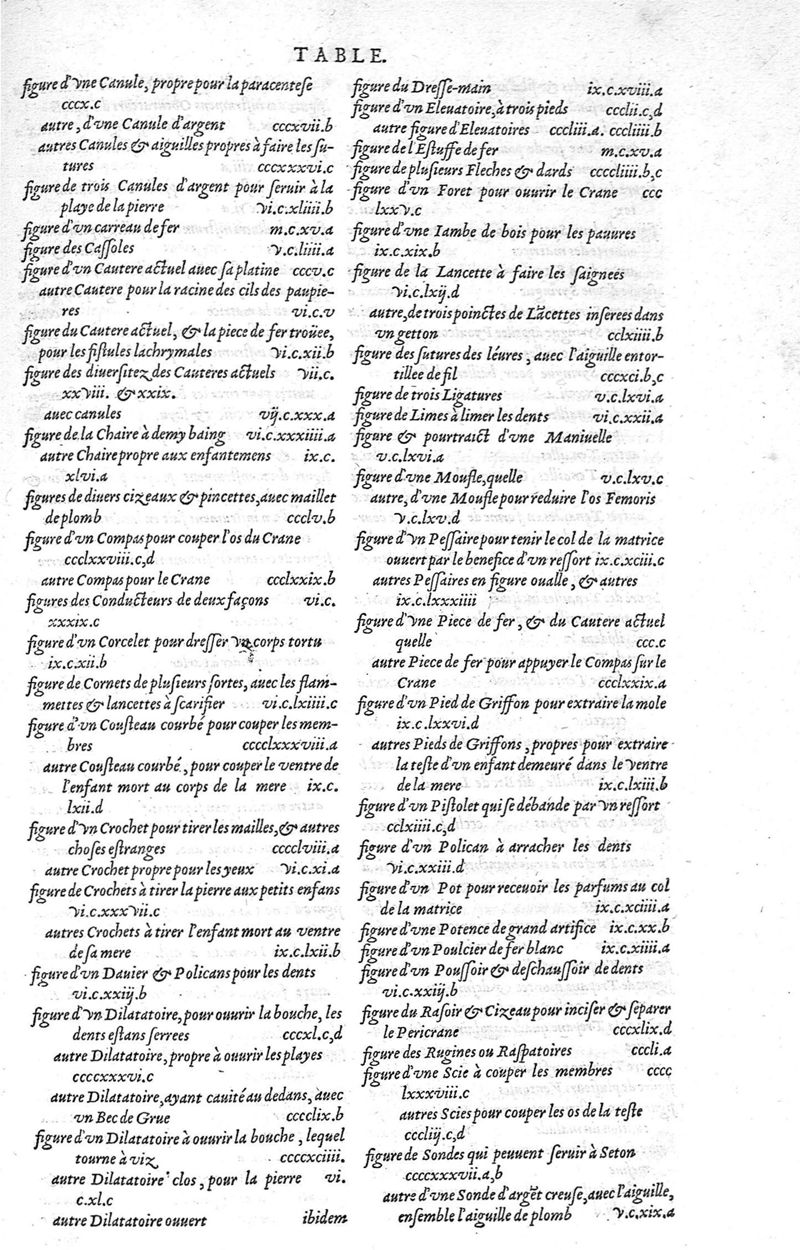 TABLE.
figure d'vne Canule, propre pour la paracentese
cccx.c
autre, d'vne Canule d'argent cccxvii.b
autres Canules & aiguilles propres à faire les su-
tures cccxxxvi.c
figure de trois Canules d'argent pour seruir à la
playe de la pierre vi.c.xliiii.b
figure d'vn carreau de fer m.c.xv.a
figure des Cassoles v.c.liiii.a
figure d'vn Cautere actuel auec sa platine cccv.c
autre Cautere pour la racine des cils des paupie-
res vi.c.v
figure du Cautere actuel, & la piece de fer troüee,
pour les fistules lachrymales vi.c.xii.b
figure des diuersitez des Cauteres actuels vii.c.
xxviii. & xxix.
auec canules vij.c.xxx.a
figure de la Chaire à demy baing vi.c.xxxiiii.a
autre Chaire propre aux enfantemens ix.c.
xlvi.a
figures de diuers cizeaux & pincettes, auec maillet
de plomb ccclv.b
figure d'vn Compas pour couper l'os du Crane
ccclxxviii.c,d
autre Compas pour le Crane ccclxxix.b
figures des Conducteurs de deux façons vi.c.
xxxix.c
figure d'vn Corcelet pour dresser vn corps tortu
ix.c.xii.b
figure de Cornets de plusieurs sortes, auec les flam-
mettes & lancettes à scarifier vi.c.lxiiii.c
figure d'vn Cousteau courbé pour couper les mem-
bres cccclxxxviii.a
autre Cousteau courbé, pour couper le ventre de
l'enfant mort au corps de la mere ix.c.
lxii.d
figure d'vn Crochet pour tirer les mailles, & autres
choses estranges cccclviii.a
autre Crochet propre pour les yeux vi.c.xi.a
figure de Crochets à tirer la pierre aux petits enfans
vi.c.xxxvii.c
autres Crochets à tirer l'enfant mort au ventre
de sa mere ix.c.lxii.b
figure d'vn Dauier & Policans pour les dents
vi.c.xxiij.b
figure d'vn Dilatatoire, pour ouurir la bouche, les
dents estans serrees cccxl.c,d
autre Dilatatoire, propre à ouurir les playes
ccccxxxvi.c
autre Dilatatoire, ayant cauité au dedans, auec
vn Bec de Grue cccclix.b
figure d'vn Dilatatoire à ouurir la bouche, lequel
tourne à viz ccccxciiii.
autre Dilatatoire clos, pour la pierre vi.
c.xl.c
autre Dilatatoire ouuert ibidem
figure du Dresse-main ix.c.xviii.a
figure d'vn Eleuatoire, à trois pieds ccclii.c,d
autre figure d'Eleuatoires cccliii.a. cccliiii.b
figure de l'Estuffe de fer m.c.xv.a
figure de plusieurs Fleches & dards ccccliiii.b,c
figure d'vn Foret pour ouurir le Crane ccc
lxxv.c
figure d'vne Iambe de bois pour les pauures
ix.c.xix.b
figure de la Lancette à faire les saignees
vi.c.lxij.d
autre, de trois poinctes de Lãcettes inserees dans
vn getton cclxiiii.b
figure des sutures des léures, auec l'aiguille entor-
tillee de fil cccxci.b,c
figure de trois Ligatures v.c.lxvi.a
figure de Limes à limer les dents vi.c.xxii.a
figure & pourtraict d'vne Maniuelle
v.c.lxvi.a
figure d'vne Moufle, quelle v.c.lxv.c
autre, d'vne Moufle pour reduire l'os Femoris
v.c.lxv.d
figure d'vn Pessaire pour tenir le col de la matrice
ouuert par le benefice d'vn ressort ix.c.xciii.c
autres Pessaires en figure oualle, & autres
ix.c.lxxxiiii
figure d'vne Piece de fer, & du Cautere actuel
quelle ccc.c
autre Piece de fer pour appuyer le Compas sur le
Crane ccclxxix.a
figure d'vn Pied de Griffon pour extraire la mole
ix.c.lxxvi.d
autres Pieds de Griffons, propres pour extraire
la teste d'vn enfant demeuré dans le ventre
de la mere ix.c.lxiii.b
figure d'vn Pistolet qui se débande par vn ressort
cclxiiii.c,d
figure d'vn Polican à arracher les dents
vi.c.xxiii.d
figure d'vn Pot pour receuoir les parfums au col
de la matrice ix.c.xciiii.a
figure d'vne Potence de grand artifice ix.c.xx.b
figure d'vn Poulcier de fer blanc ix.c.xiiii.a
figure d'vn Poussoir & deschaussoir de dents
vi.c.xxiij.b
figure du Rasoir & Cizeau pour inciser & separer
le Pericrane cccxlix.d
figure des Rugines ou Raspatoires cccli.a
figure d'vne Scie à couper les membres cccc
lxxxviii.c
autres Scies pour couper les os de la teste
cccliij.c,d
figure de Sondes qui peuuent seruir à Seton
ccccxxxvii.a,b
autre d'vne Sonde d'argẽt creuse, auec l'aiguille,
ensemble l'aiguille de plomb v.c.xix.a